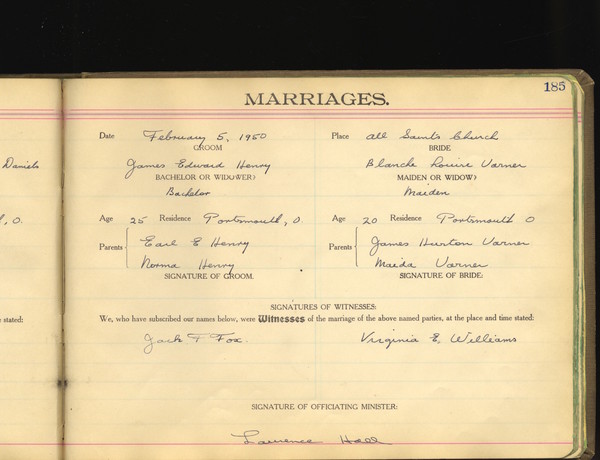 185
MARRIAGES.
Date February 5, 1950 Place All Saints Church
GROOM BRIDE
Daniels James Edward Henry Blanche Louise Varner
BACHELOR OR WIDOWER? MAIDEN OR WIDOW?
Bachelor Maiden
, O. Age 25 Residence Portsmouth, O. Age 20 Residence Portsmouth O
Parents Earl E Henry Parents James Hurton Varner
Norma Henry Maida Varner
SIGNATURE OF GROOM. SIGNATURE OF BRIDE:
SIGNATURES OF WITNESSES:
e stated: We, who have subscribed our names below, were Witnesses of the marriage of the above named parties, at the place and time stated:
Jack T Fox. Virginia E. Williams
SIGNATURE OF OFFICIATING MINISTER:
Lawrence Hall